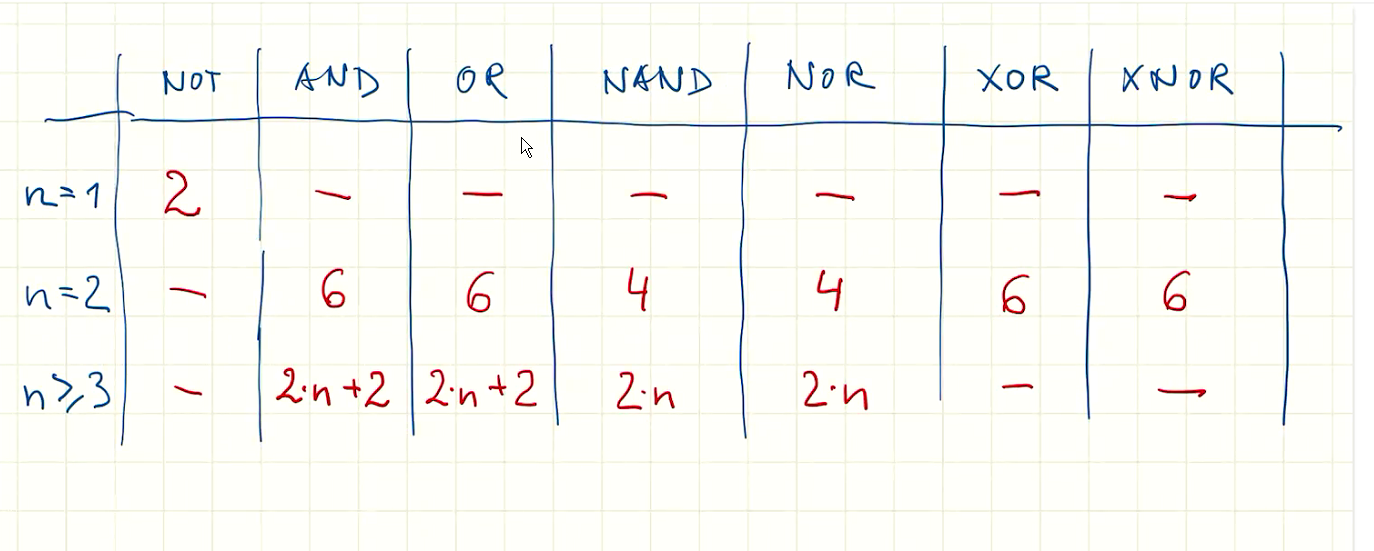 NOT AND OR NAND NOR XOR XNOR
n=1 2 — — — — — —
n=2 — 6 6 4 4 6 6
n≥3 — 2·n+2 2·n+2 2·n 2·n — —